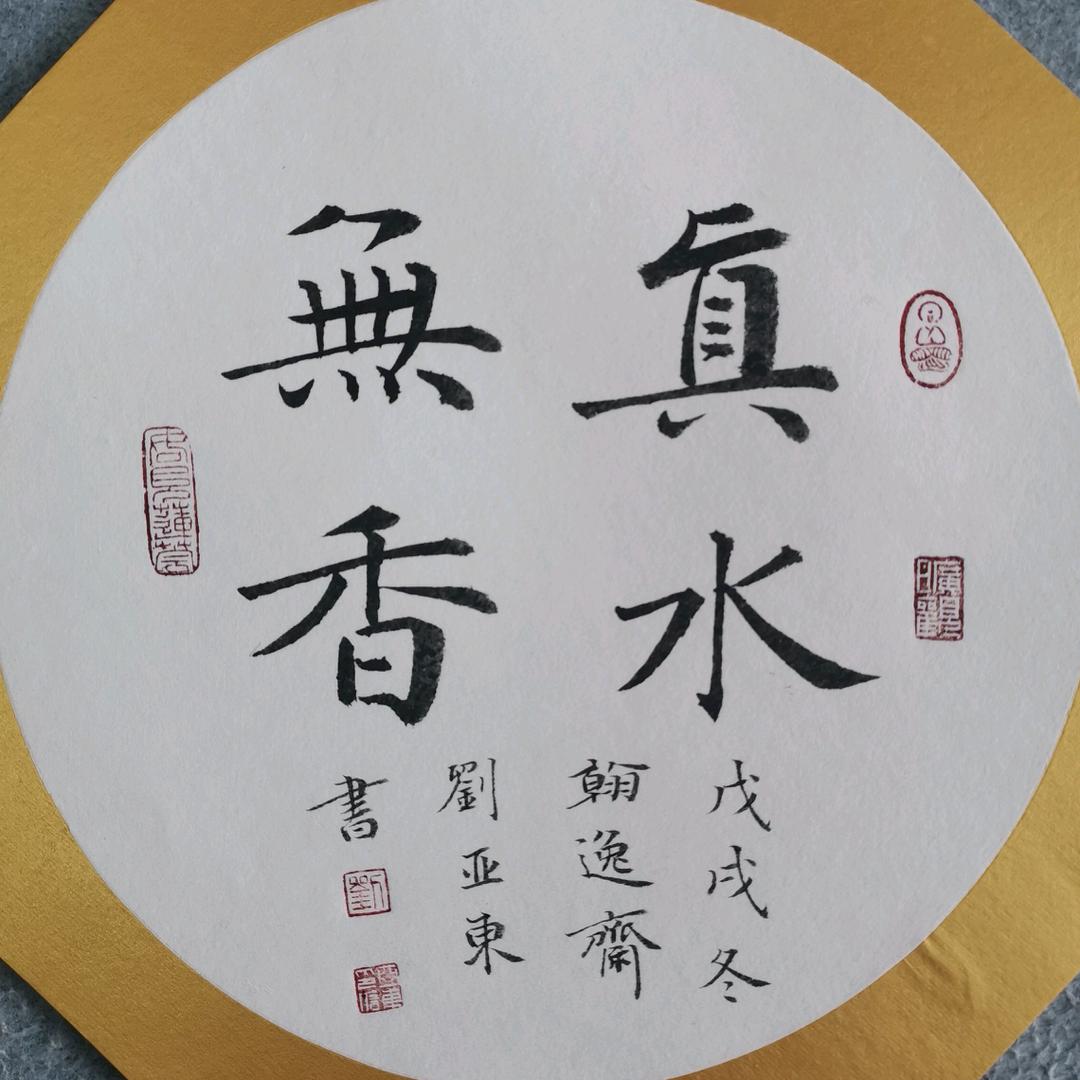 眞水
無香
戊戌冬
翰逸齋
劉亚東
書